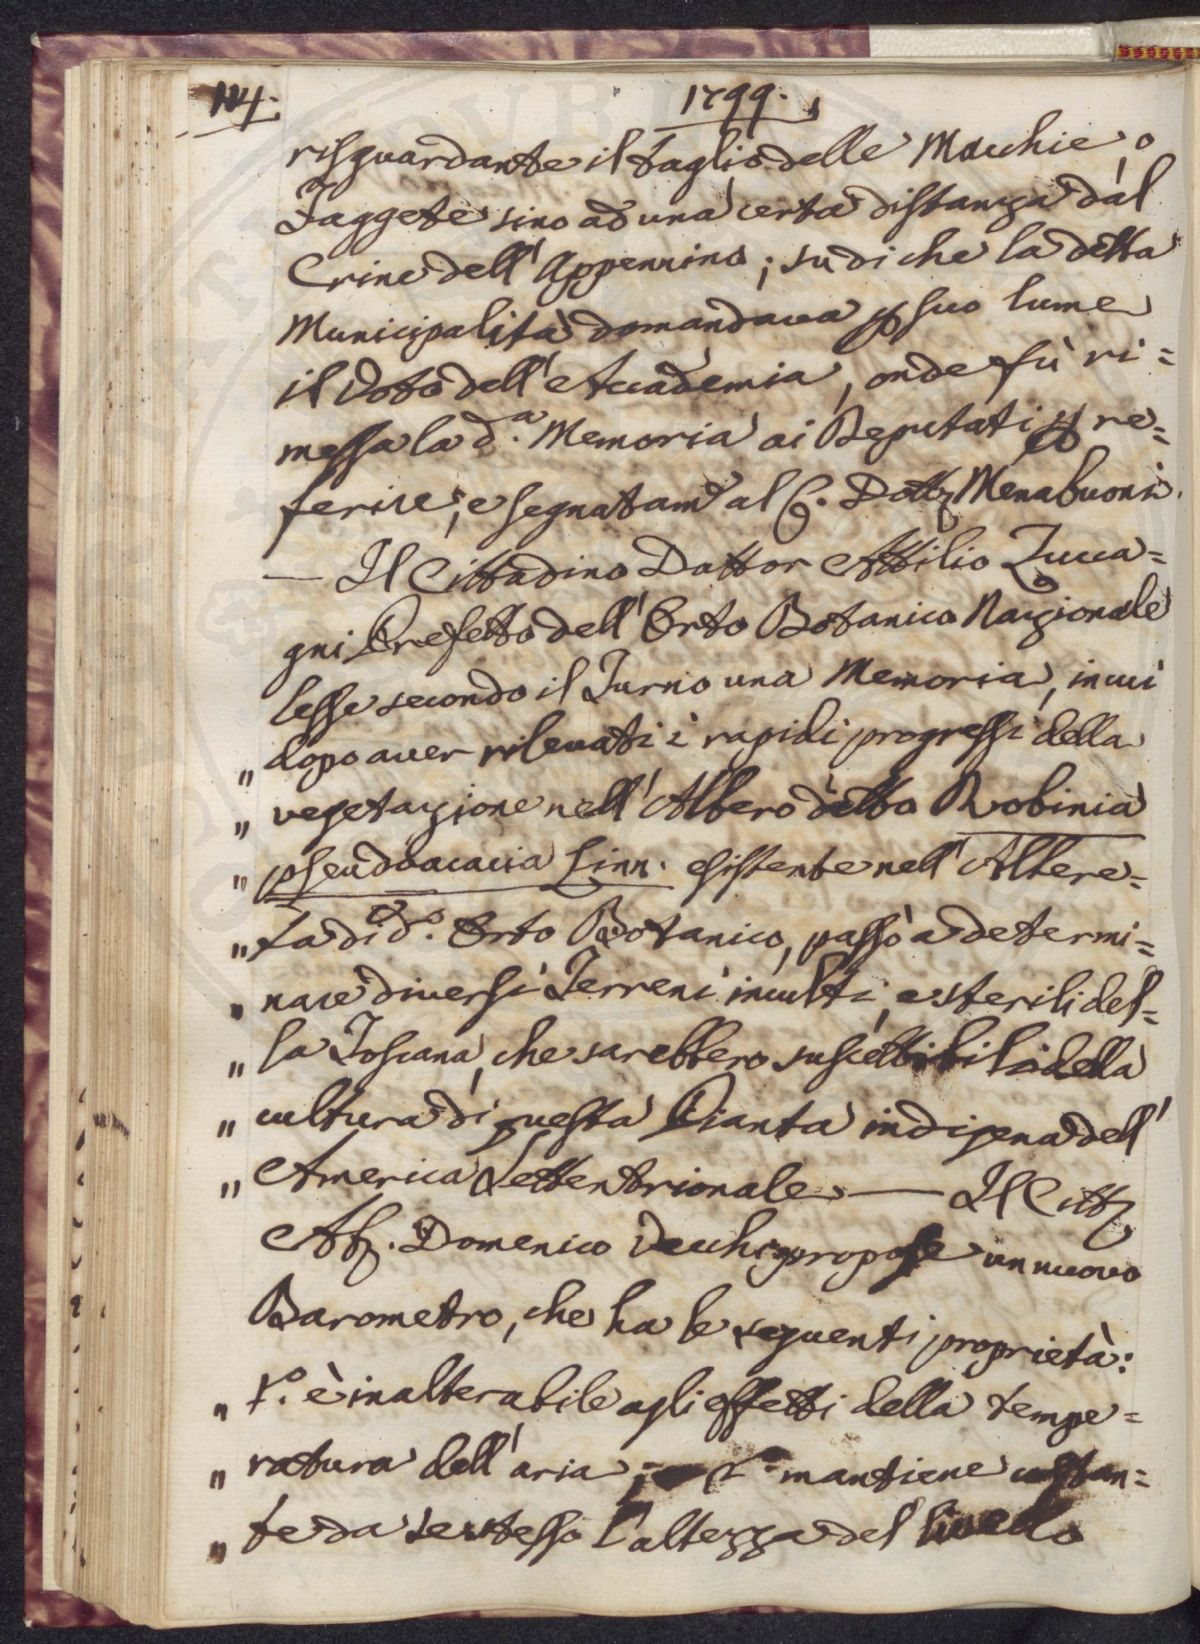 114.
1799.
risguardante il taglio delle Macchie, o
Faggete sino ad una certa distanza dal
Crine dell'Appennino; su di che la detta
Municipalità domandava p suo lume
il Voto dell'Accademia, onde fù ri=
messa la d.a Memoria ai Deputati p re=
ferire, e segnatam.e al C. Dott. Menabuoni.
— Il Cittadino Dottor Attilio Zucca=
gni Prefetto dell'Orto Botanico Nazionale
lesse secondo il Turno una Memoria, in cui
„ dopo aver rilevati i rapidi progressi della
„ vegetazione nell'Albero detto Robinia
„ pseudoacacia Linn. esistente nell'Albere=
„ ta di d.o Orto Botanico, passò a determi=
„ nare diversi Terreni inculti, e sterili del=
„ la Toscana, che sarebbero suscettibili della
„ cultura di questa Pianta indigena dell'
„ America Settentrionale — Il Citt.
Ab. Domenico Vecchi propose un nuovo
Barometro, che ha le seguenti proprietà:
„ 1.o è inalterabile agli effetti della tempe=
„ ratura dell'aria; 2.o mantiene costan=
„ te da se stesso l'altezza del livello